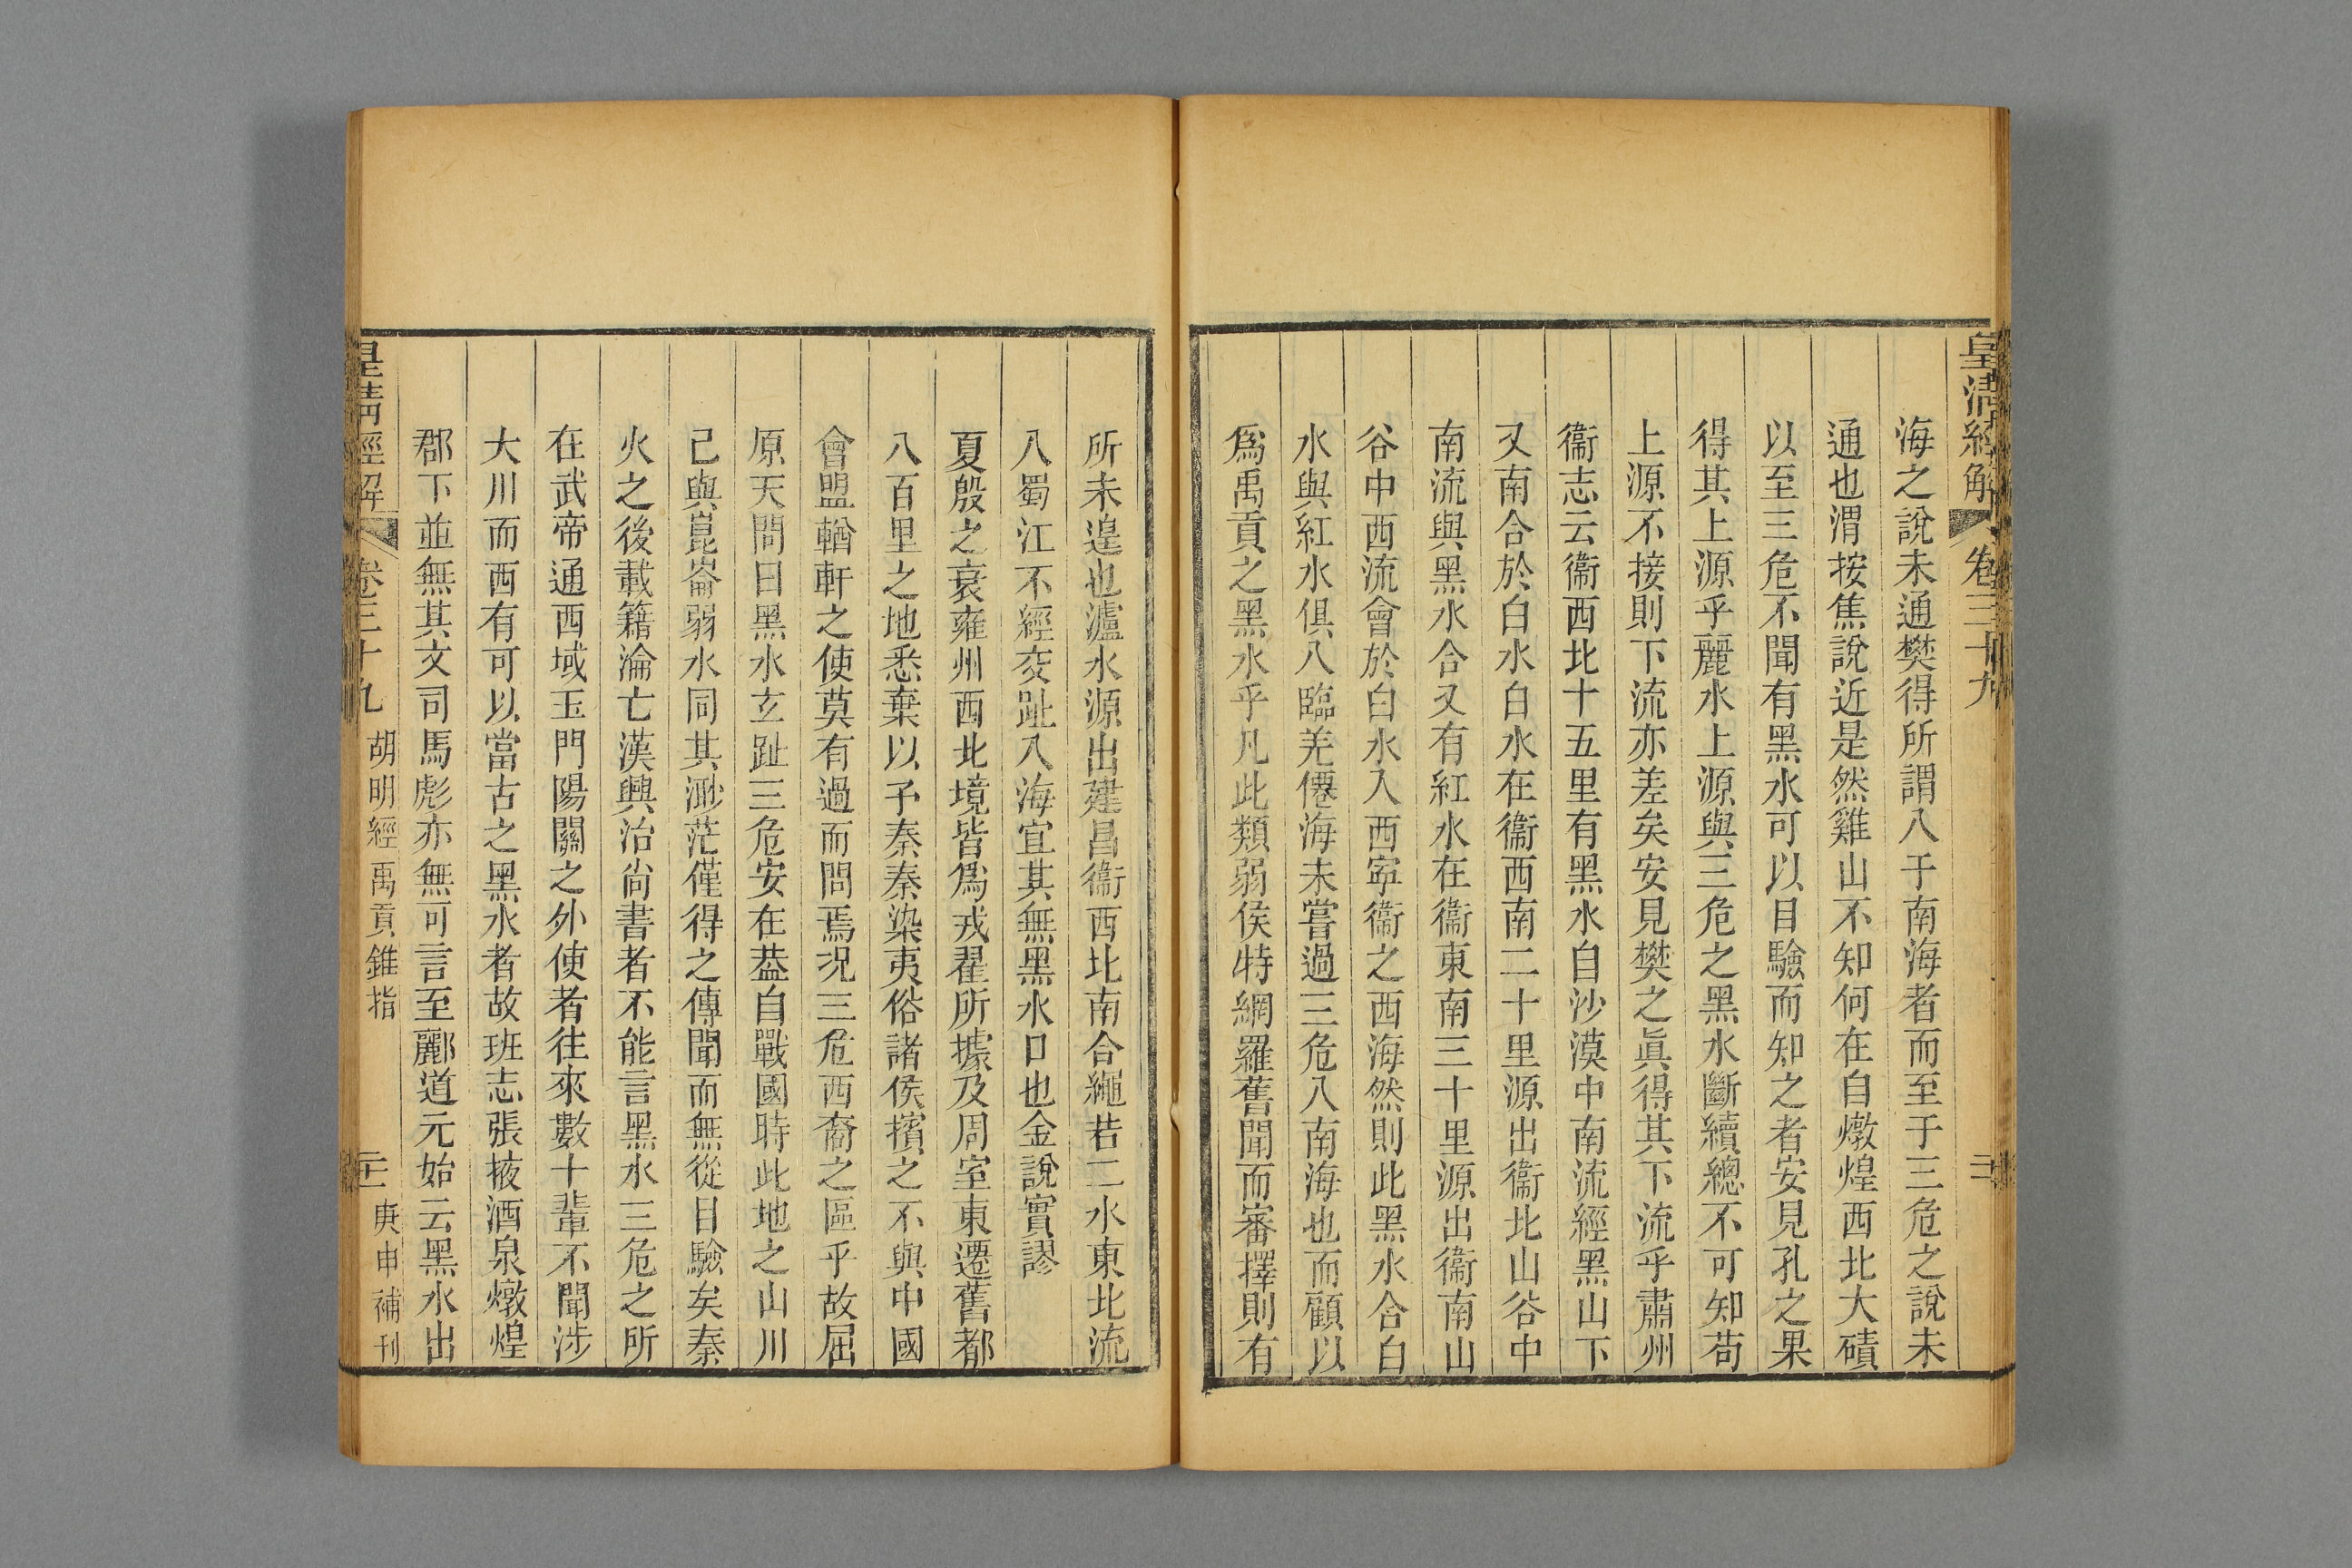 皇清經解 卷三十九
海之說未通樊得所謂入于南海者而至于三危之說未
通也渭按焦說近是然雞山不知何在自燉煌西北大磧
以至三危不聞有黑水可以目驗而知之者安見孔之果
得其上源乎麗水上源與三危之黑水斷續總不可知苟
上源不接則下流亦差矣安見樊之眞得其下流乎肅州
衞志云衞西北十五里有黑水自沙漠中南流經黑山下
又南合於白水白水在衞西南二十里源出衞北山谷中
南流與黑水合又有紅水在衞東南三十里源出衞南山
谷中西流會於白水入西寧衞之西海然則此黑水合白
水與紅水俱入臨羌僊海未嘗過三危入南海也而顧以
爲禹貢之黑水乎凡此類弱侯特網羅舊聞而審擇則有
所未遑也瀘水源出建昌衞西北南合繩若二水東北流
入蜀江不經交趾入海宜其無黑水口也金說實謬
夏殷之衰雍州西北境皆爲戎翟所據及周室東遷舊都
八百里之地悉棄以予秦秦染夷俗諸侯擯之不與中國
會盟輶軒之使莫有過而問焉况三危西裔之區乎故屈
原天問曰黑水玄趾三危安在葢自戰國時此地之山川
己與崑崙弱水同其渺茫僅得之傳聞而無從目驗矣秦
火之後載籍淪亡漢興治尚書者不能言黑水三危之所
在武帝通西域玉門陽關之外使者往來數十輩不聞涉
大川而西有可以當古之黑水者故班志張掖酒泉燉煌
郡下並無其文司馬彪亦無可言至酈道元始云黑水出
皇清經解 卷三十九 胡明經禹貢錐指 庚申補刊